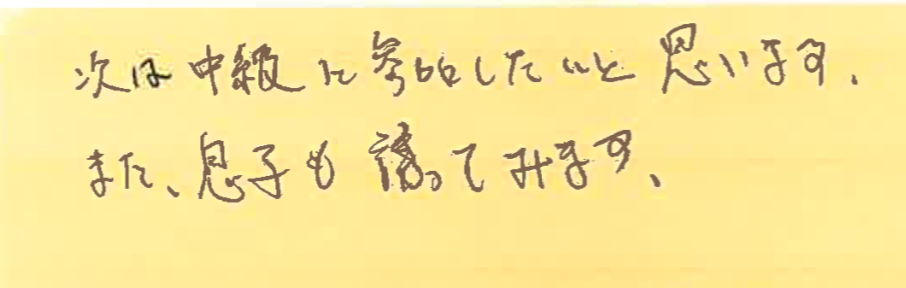 次は中級に参加したいと思います、
また、息子も誘ってみます、